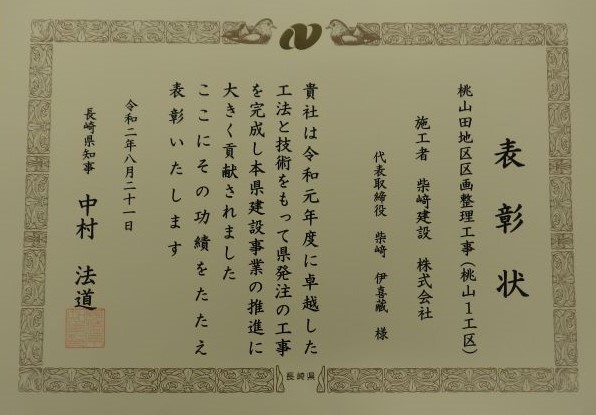 表彰状
桃山田地区区画整理工事(桃山1工区)
施工者 柴﨑建設 株式会社
代表取締役 柴﨑 伊喜藏 様
貴社は令和元年度に卓越した
工法と技術をもって県発注の工事
を完成し本県建設事業の推進に
大きく貢献されました
ここにその功績をたたえ
表彰いたします
令和二年八月二十一日
長崎県知事 中村 法道
長崎県